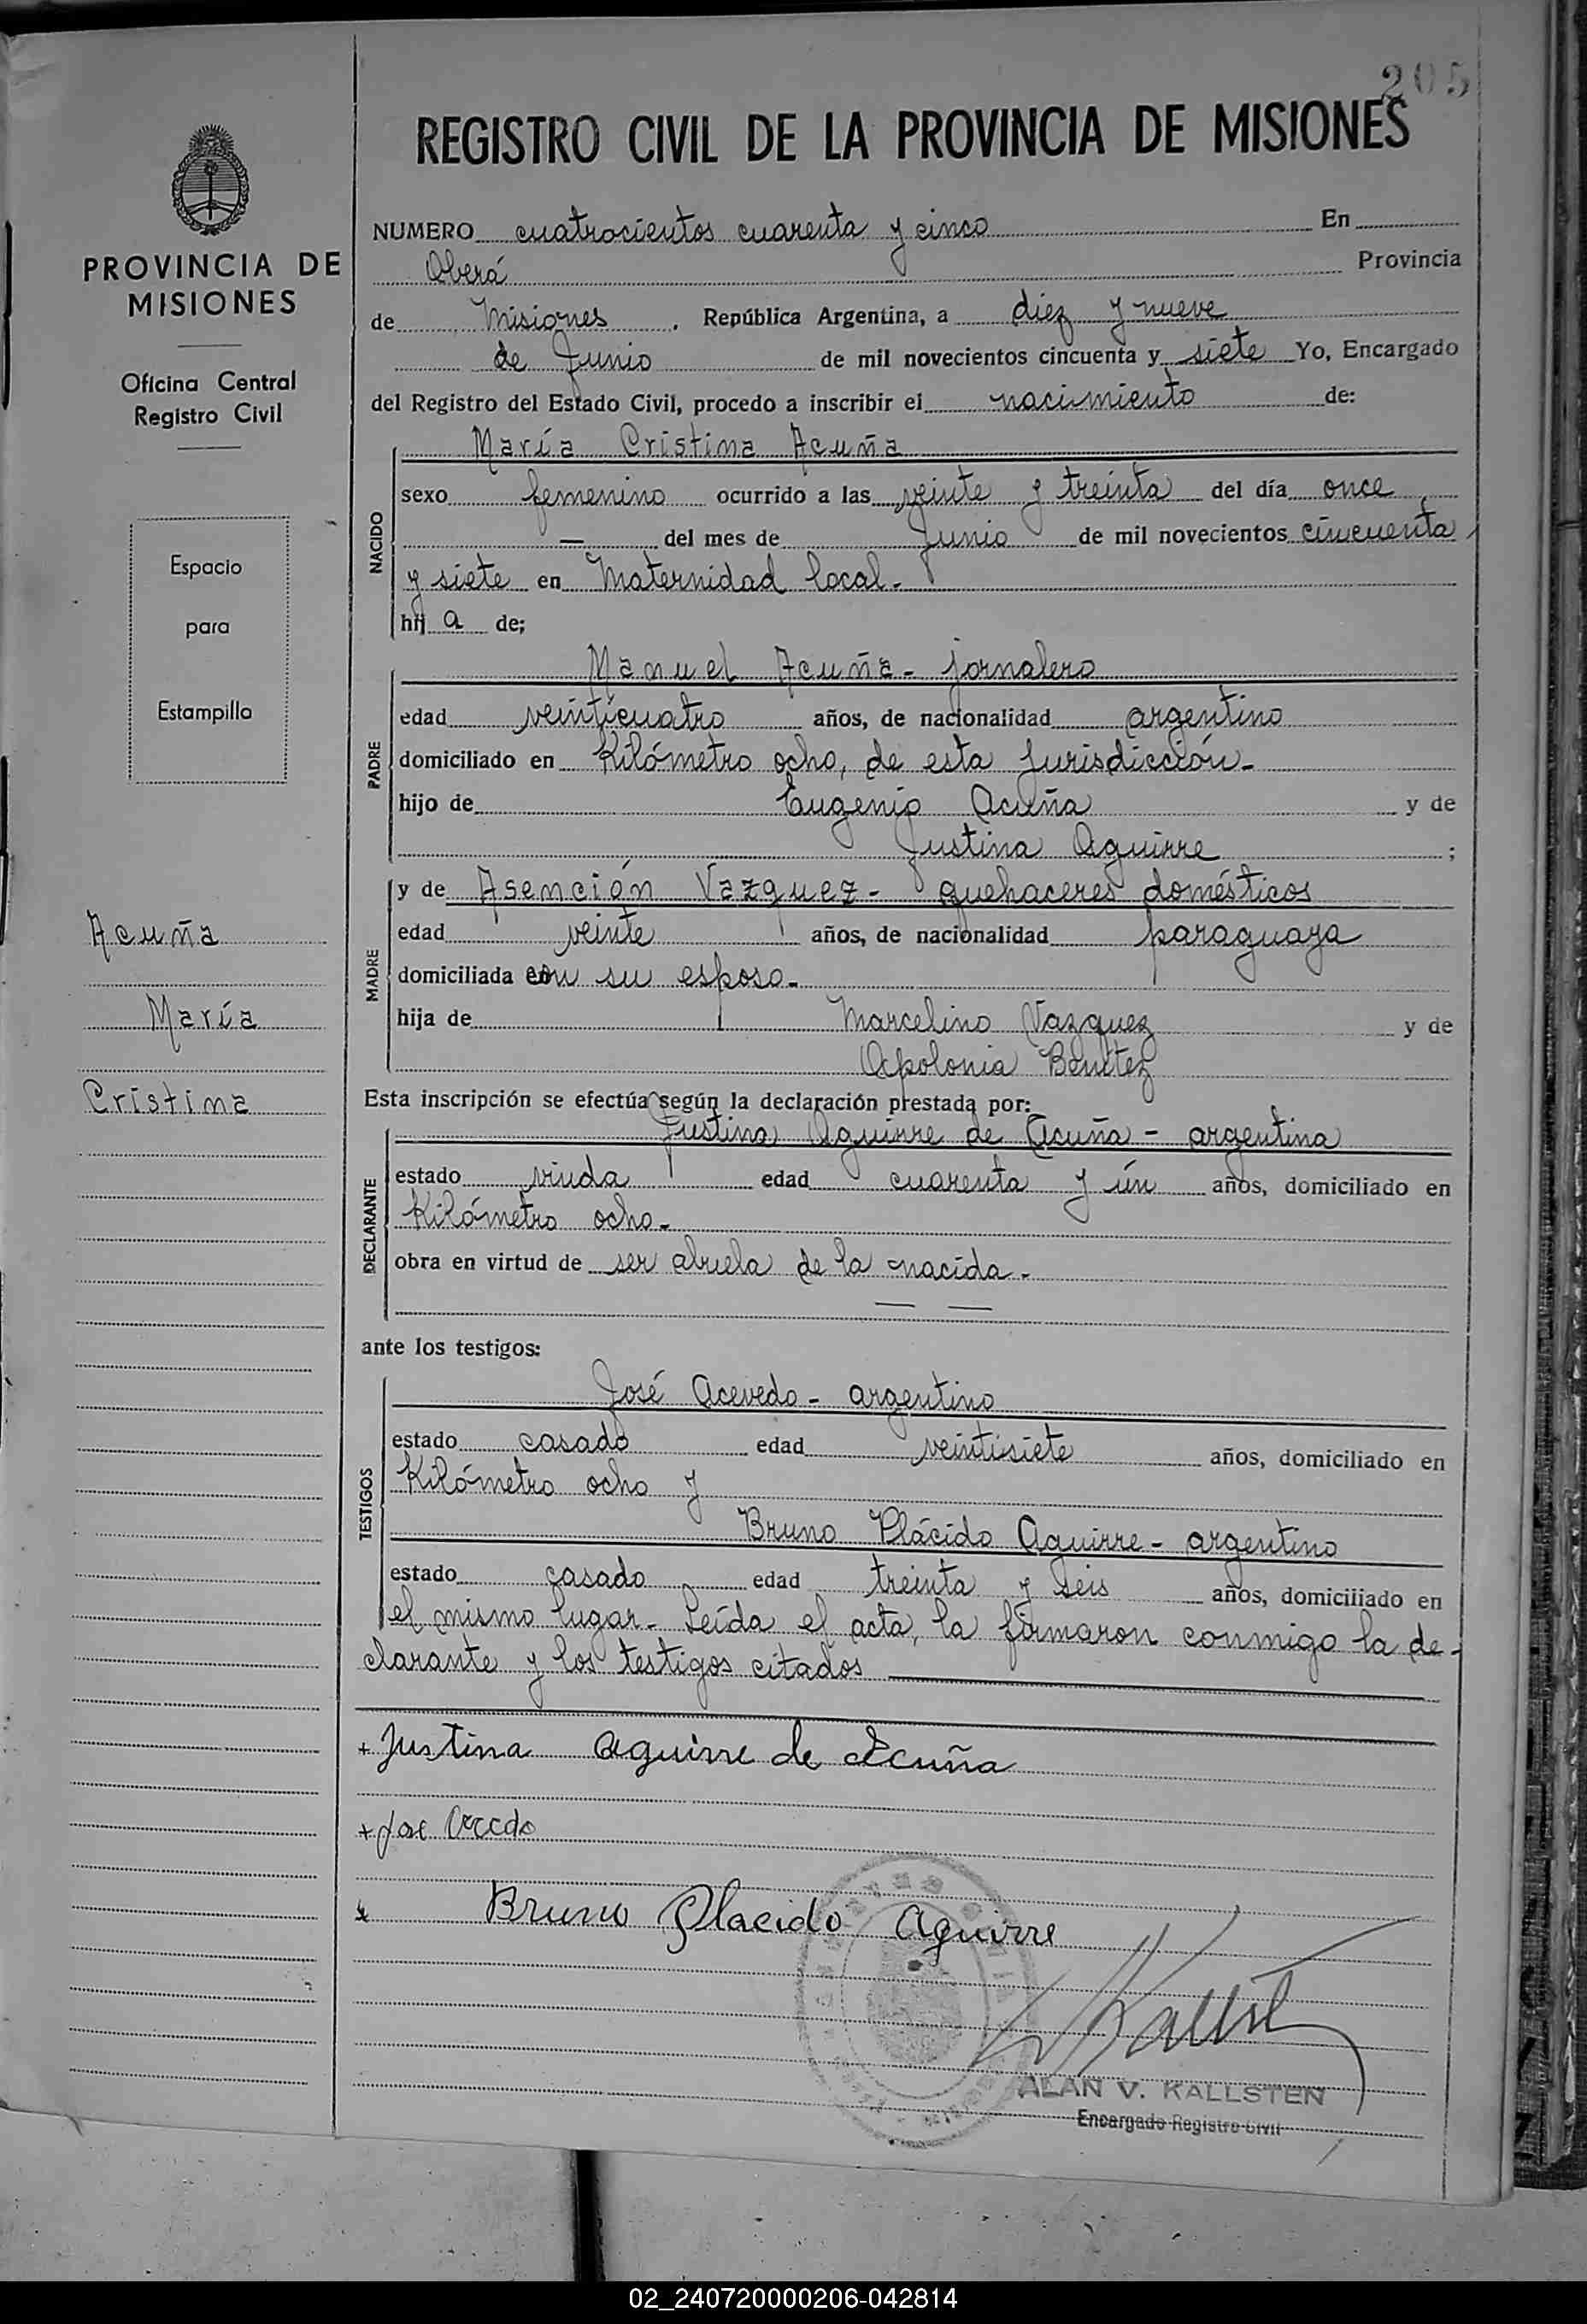 205
REGISTRO CIVIL DE LA PROVINCIA DE MISIONES
PROVINCIA DE
MISIONES
Oficina Central
Registro Civil
Espacio
para
Estampilla
Acuña
María
Cristina
NUMERO cuatrocientos cuarenta y cinco En
Oberá Provincia
de Misiones, República Argentina, a diez y nueve
de Junio de mil novecientos cincuenta y siete Yo, Encargado
del Registro del Estado Civil, procedo a inscribir el nacimiento de:
NACIDO
María Cristina Acuña
sexo femenino ocurrido a las veinte y treinta del día once
— del mes de Junio de mil novecientos cincuenta
y siete en Maternidad local.-
hij a de;
PADRE
Manuel Acuña - jornalero
edad veinticuatro años, de nacionalidad argentino
domiciliado en Kilómetro ocho, de esta Jurisdicción-
hijo de Eugenio Acuña y de
Justina Aguirre ;
MADRE
y de Asención Vazquez - quehaceres domésticos
edad veinte años, de nacionalidad paraguaya
domiciliada con su esposo-
hija de Marcelino Vazquez y de
Apolonia Benítez
Esta inscripción se efectúa según la declaración prestada por:
DECLARANTE
Justina Aguirre de Acuña - argentina
estado viuda edad cuarenta y ún años, domiciliado en
Kilómetro ocho-
obra en virtud de ser abuela de la nacida.-
— —
ante los testigos:
TESTIGOS
José Acevedo - argentino
estado casado edad veintisiete años, domiciliado en
Kilómetro ocho y
Bruno Plácido Aguirre - argentino
estado casado edad treinta y seis años, domiciliado en
el mismo lugar- Leída el acta, la firmaron conmigo la de-
clarante y los testigos citados
+ Justina Aguirre de Acuña
+ Jose
Bruno Placido Aguirre
Kallst
ALAN V. KALLSTEN
Encargado Registro Civil
02_240720000206-042814